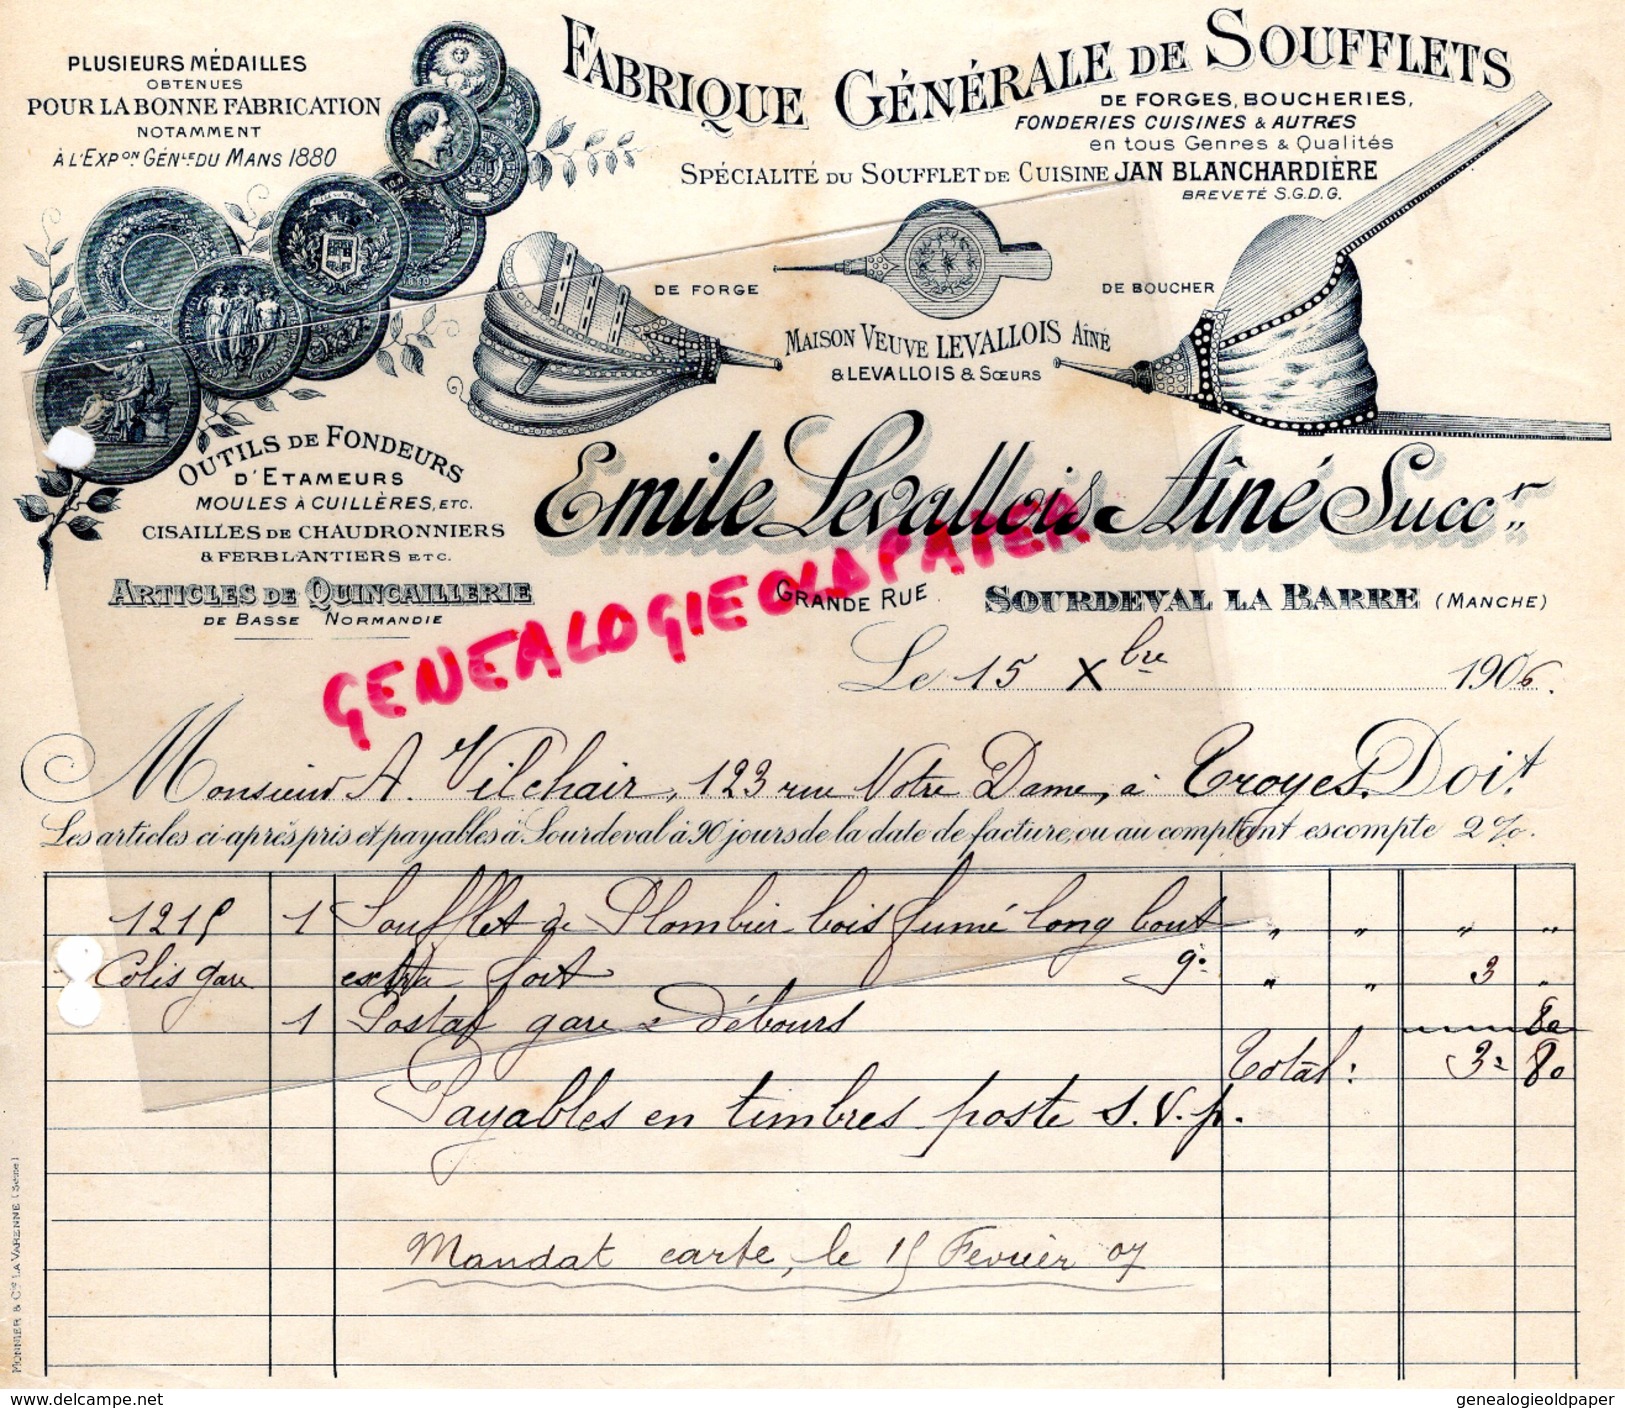 PLUSIEURS MÉDAILLES
OBTENUES
POUR LA BONNE FABRICATION
NOTAMMENT
À L'EXPON GÉNLE DU MANS 1880
FABRIQUE GÉNÉRALE DE SOUFFLETS
DE FORGES, BOUCHERIES,
FONDERIES CUISINES & AUTRES
en tous Genres & Qualités
SPÉCIALITÉ DU SOUFFLET DE CUISINE JAN BLANCHARDIÈRE
BREVETÉ S.G.D.G.
DE FORGE
DE BOUCHER
MAISON VEUVE LEVALLOIS AÎNÉ
& LEVALLOIS & SŒURS
OUTILS DE FONDEURS
D'ETAMEURS
MOULES À CUILLÈRES, ETC.
CISAILLES DE CHAUDRONNIERS
& FERBLANTIERS ETC.
ARTICLES DE QUINCAILLERIE
DE BASSE NORMANDIE
Emile Levallois Aîné Succr
GENEALOGIEOLDPAPER
GRANDE RUE. SOURDEVAL LA BARRE (MANCHE)
Le 15 Xbre 1906.
Monsieur A. Vilchair, 123 rue Notre Dame, à Troyes. Doit.
Les articles ci-après pris et payables à Sourdeval à 90 jours de la date de facture, ou au comptant escompte 2%.
1215 1 Soufflet de Plombier bois fumé long bout " " " "
Colis gare extra fort go " " 3 "
1 Postal gare & débours 80
Total: 3 = 80
Payables en timbres poste S.V.p.
Mandat carte, le 15 Fevrier 07
MONNIER & Cie LA VARENNE (Seine)
www.delcampe.net
genealogieoldpaper